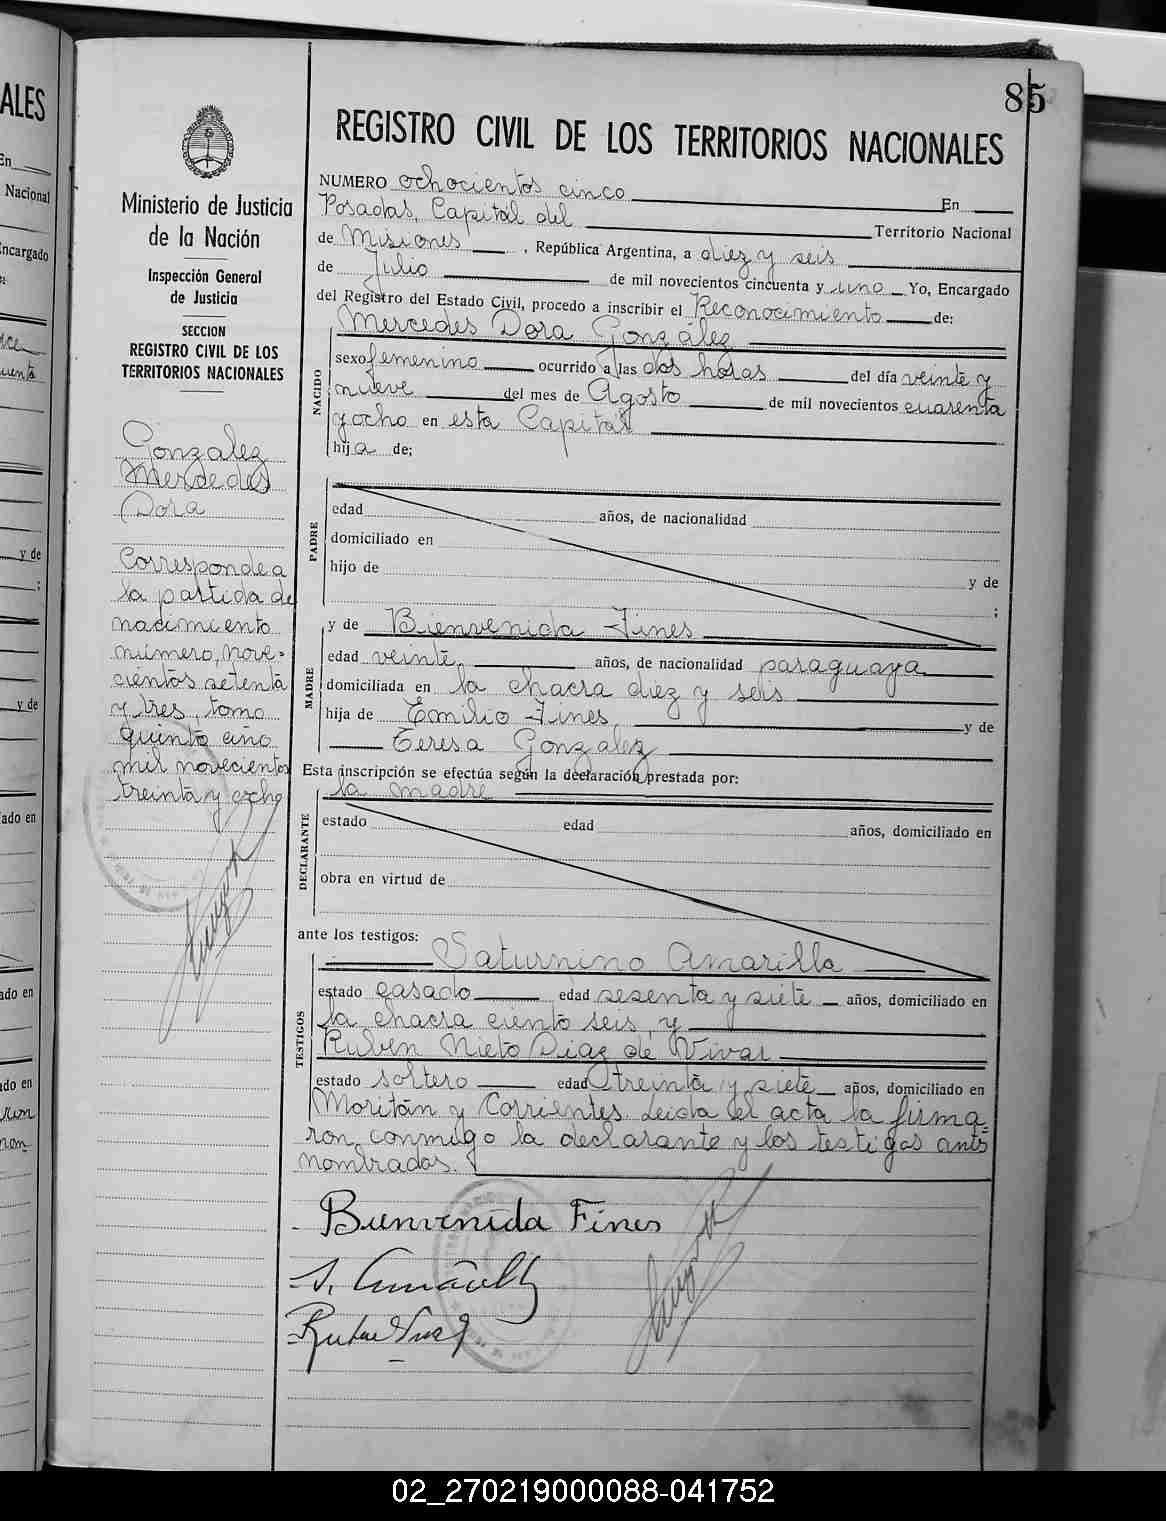 85
REGISTRO CIVIL DE LOS TERRITORIOS NACIONALES
NUMERO ochocientos cinco En
Posadas, Capital del Territorio Nacional
de Misiones, República Argentina, a diez y seis
de Julio de mil novecientos cincuenta y uno Yo, Encargado
del Registro del Estado Civil, procedo a inscribir el Reconocimiento de:
Mercedes Dora González
NACIDO
sexo femenino ocurrido a las dos horas del día veinte y
nueve del mes de Agosto de mil novecientos cuarenta
y ocho en esta Capital
hija de;
PADRE
edad años, de nacionalidad
domiciliado en
hijo de y de
;
y de Bienvenida Fines
MADRE
edad veinte años, de nacionalidad paraguaya
domiciliada en la chacra diez y seis
hija de Emilio Fines, y de
Teresa Gonzalez
Esta inscripción se efectúa según la declaración prestada por:
la madre
DECLARANTE
estado edad años, domiciliado en
obra en virtud de
ante los testigos:
Saturnino Amarilla
TESTIGOS
estado casado edad sesenta y siete años, domiciliado en
la chacra ciento seis, y
Ruben Nieto Diaz de Vivar
estado soltero edad treinta y siete años, domiciliado en
Moritán y Corrientes. Leida el acta la firma-
ron conmigo la declarante y los testigos ants
nombrados.
Bienvenida Fines
S. Amarilla
Ministerio de Justicia
de la Nación
Inspección General
de Justicia
SECCION
REGISTRO CIVIL DE LOS
TERRITORIOS NACIONALES
Gonzalez
Mercedes
Dora
Corresponde a
la partida de
nacimiento
número, nove-
cientos setenta
y tres, tomo
quinto año
mil novecientos
treinta y ocho
ALES
En
Nacional
Encargado
y de
;
y de
ado en
ado en
ado en
02_270219000088-041752